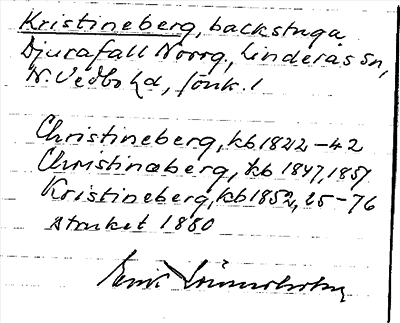 Kristineberg, backstuga
Djurafall Norrg., Linderås sn,
N. Vedbo hd, Jönk. l
Christineberg, kb 1822-42
Christinæberg, kb 1847, 1857
Kristineberg, kb 1852, 65-76
struket 1880